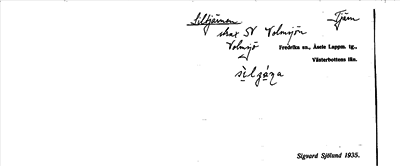 Siltjärnen Tjärn
strax SV Volmsjön
Volmsjö Fredrika sn., Åsele Lappm. tg.,
Västerbottens län.
Sigvard Sjölund 1935.